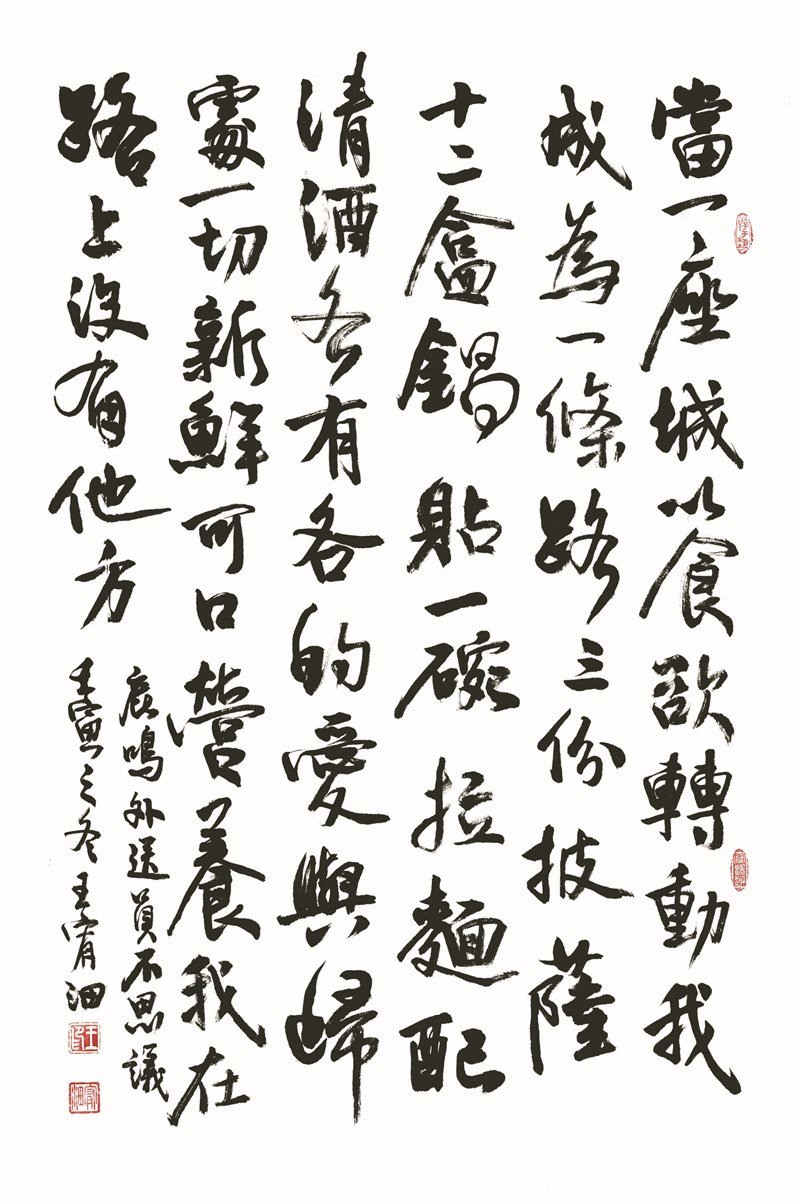 當一座城以食欲轉動我
成為一條路三份披薩
十二盒鍋貼一碗拉麵配
清酒各有各的愛與歸
處一切新鮮可口營養我在
路上沒有他方
鹿鳴外送員不思議
之冬王